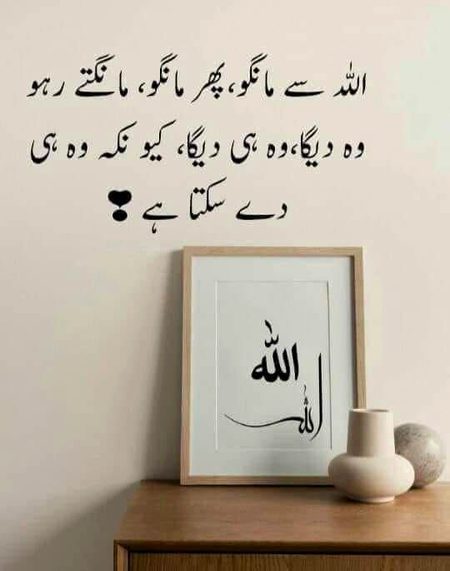 اللہ سے مانگو، پھر مانگو، مانگتے رہو
وہ دیگا،وہ ہی دیگا، کیو نکہ وہ ہی
دے سکتا ہے ❣
الله
الله